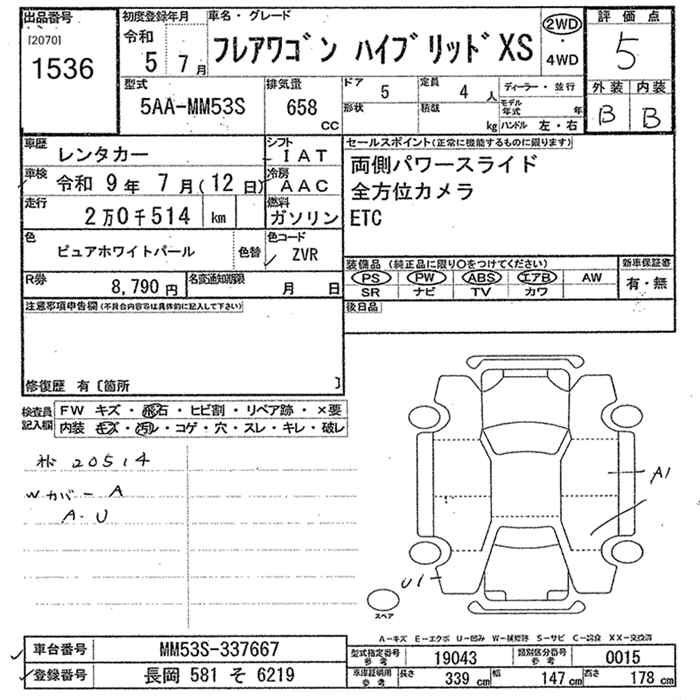 出品番号
[2070]
1536
初度登録年月
令和
5 7月
車名・グレード
フレアワゴン ハイブリッド XS
2WD
・
4WD
評価点
5
外装 内装
B B
型式
5AA-MM53S
排気量
658
CC
ドア
5
定員
4 人
形状
積載
kg
ディーラー・並行
モデル年式 年
ハンドル 左・右
車歴
レンタカー
シフト
IAT
車検
令和 9年 7月(12日)
冷房
AAC
走行
2万0千514 km
燃料
ガソリン
色
ピュアホワイトパール
色替
色コード
ZVR
R券
8,790円
名変通知期限
月 日
セールスポイント(正常に機能するものに限ります)
両側パワースライド
全方位カメラ
ETC
装備品 (純正品に限り〇をつけてください)
PS PW ABS エアB AW
SR ナビ TV カワ
新車保証書
有・無
後日品
注意事項申告欄(不具合内容等は具体的に記入して下さい)
修復歴 有〔箇所 〕
検査員記入欄
FW キズ・飛石・ヒビ割・リペア跡・×要
内装 キズ・汚レ・コゲ・穴・スレ・キレ・破レ
20514
Wカバー A
A・U
A1
U1
スペア
A-キズ E-エクボ U-凹み W-補修跡 S-サビ C-腐食 XX-交換済
車台番号
MM53S-337667
登録番号
長岡 581 そ 6219
型式指定番号
参考
19043
類別区分番号
参考
0015
車庫証明用
参考
長さ
339 cm
幅
147 cm
高さ
178 cm